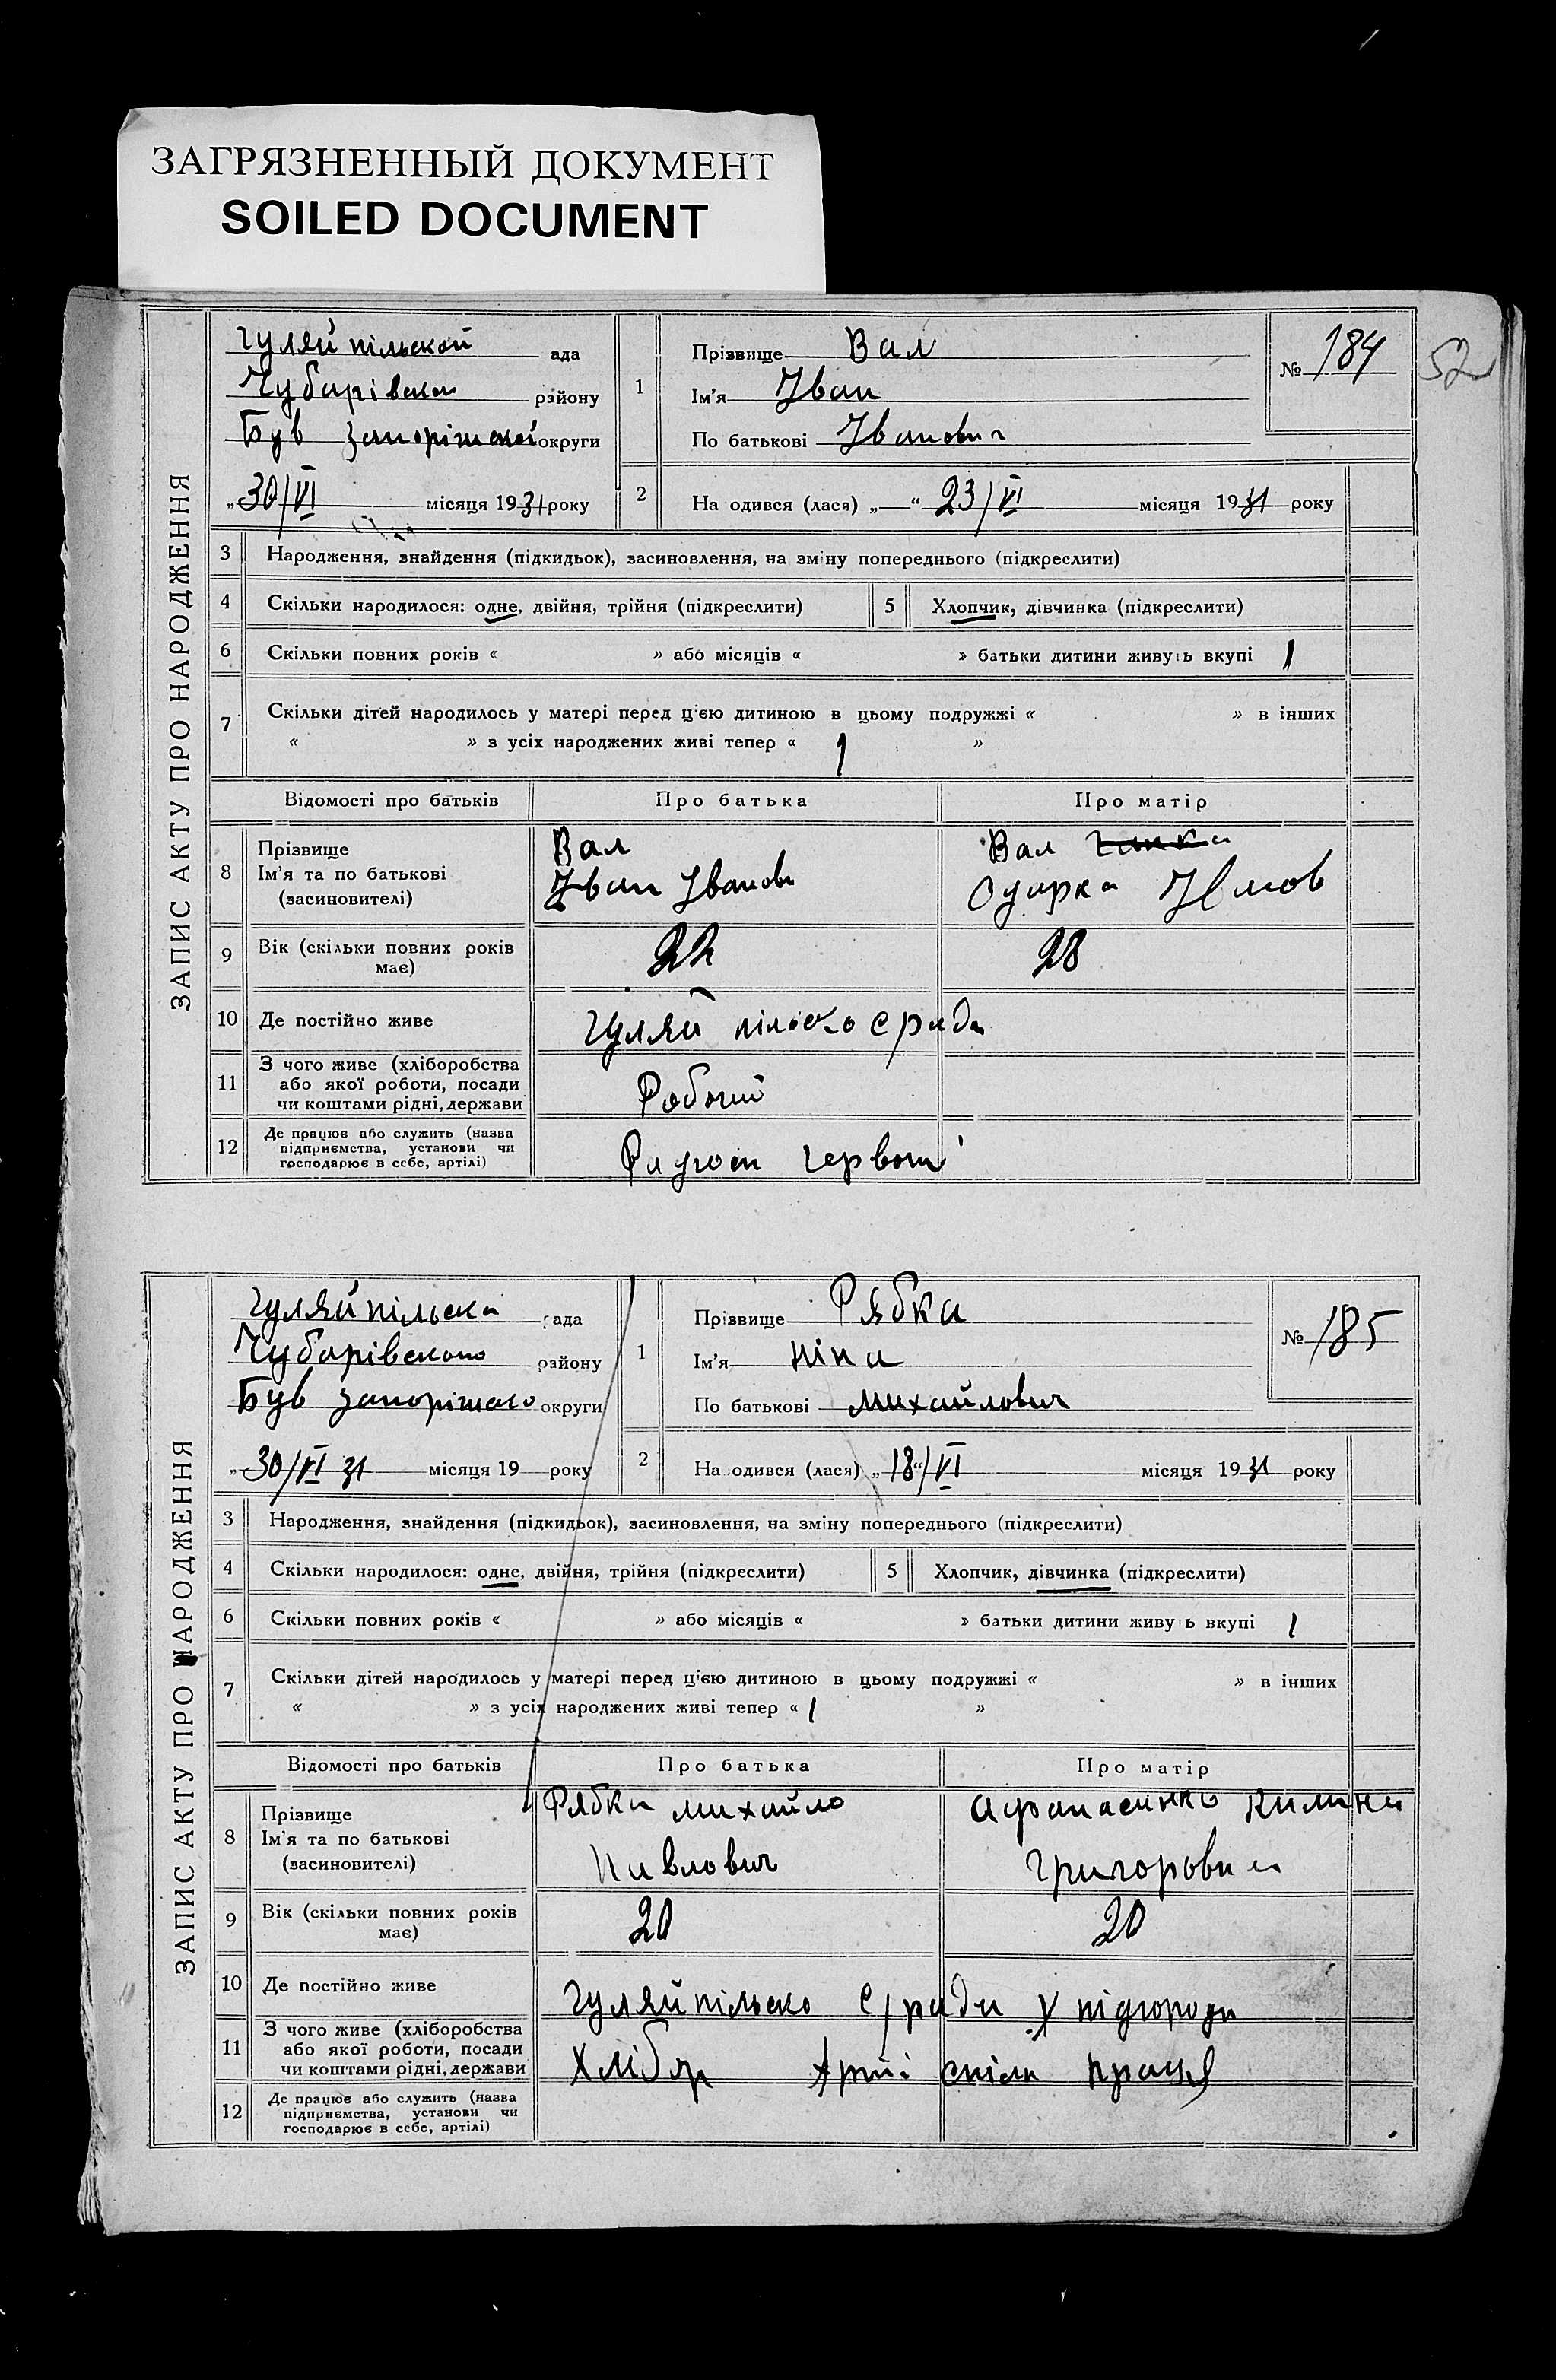 ЗАГРЯЗНЕННЫЙ ДОКУМЕНТ
SOILED DOCUMENT
52
ЗАПИС АКТУ ПРО НАРОДЖЕННЯ
Гуляйпільской ада
Чубарівськ району
Був Запоріжской округи
„30/VI місяця 1931 року
1
Прізвище Вал
Ім’я Іван
По батькові Іванович
№ 184
2
На одився (лася) „ “ 23/VI місяця 1931 року
3 Народження, знайдення (підкидьок), засиновлення, на зміну попереднього (підкреслити)
4 Скільки народилося: одне, двійня, трійня (підкреслити)
5 Хлопчик, дівчинка (підкреслити)
6 Скільки повних років « » або місяців « » батьки дитини живуть вкупі 1
7 Скільки дітей народилось у матері перед цією дитиною в цьому подружжі « » в інших
« » з усіх народжених живі тепер « 1 »
Відомості про батьків Про батька Про матір
8 Прізвище
Ім’я та по батькові
(засиновителі)
Вал
Іван Іванови
Вал
Одарка
9 Вік (скільки повних років
має)
22 28
10 Де постійно живе Гуляйпілсько с рада
11 З чого живе (хліборобства
або якої роботи, посади
чи коштами рідні, держави
Робочий
12 Де працює або служить (назва
підприємства, установи чи
господарює в себе, артілі)
Радгосп Червоний
ЗАПИС АКТУ ПРО НАРОДЖЕННЯ
Гуляйпільска рада
Чубарівського району
Був Запоріжско округи
„30/VI 31 місяця 19 року
1
Прізвище Рябка
Ім’я Ніна
По батькові Михайлович
№ 185
2
На одився (лася) „18“/VI місяця 1931 року
3 Народження, знайдення (підкидьок), засиновлення, на зміну попереднього (підкреслити)
4 Скільки народилося: одне, двійня, трійня (підкреслити)
5 Хлопчик, дівчинка (підкреслити)
6 Скільки повних років « » або місяців « » батьки дитини живуть вкупі 1
7 Скільки дітей народилось у матері перед цією дитиною в цьому подружжі « » в інших
« » з усіх народжених живі тепер « 1 »
Відомості про батьків Про батька Про матір
8 Прізвище
Ім’я та по батькові
(засиновителі)
Рябка Михайло
Павлович
Афанасинко Килина
Григоровна
9 Вік (скільки повних років
має)
20 20
10 Де постійно живе Гуляйпільско с/ради х підгороди
11 З чого живе (хліборобства
або якої роботи, посади
чи коштами рідні, держави
Хлібор Артіі спілн праця
12 Де працює або служить (назва
підприємства, установи чи
господарює в себе, артілі)